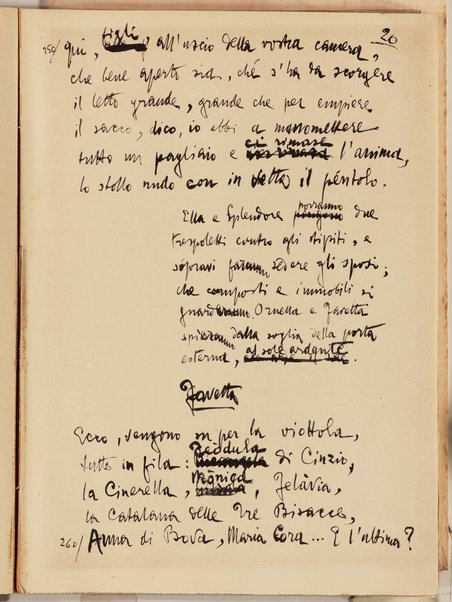 20
250/ qui, figli, all'uscio della vostra camera,
che bene aperto sia, ché s'ha da scorgere
il letto grande, grande che per empiere
il sacco, dico, io ebbi a manomettere
tutto un pagliaio e ci rimase l'anima,
lo stollo nudo con in vetta il péntolo.
Ella e Splendore porranno due
trespoletti contro gli stipiti, e
sopravi faranno sedere gli sposi;
che composti e immobili si
guarderanno. Ornella e Favetta
spieranno dalla soglia della porta
esterna, al sole ardente.
Favetta
Ecco, vengono su per la viottola,
tutte in fila: Teòdula di Cinzio,
la Cinerella, Mònica, Felàvia,
la Catalana delle Tre Bisacce,
260/ Anna di Bova, Maria Cora... E l'ultima?